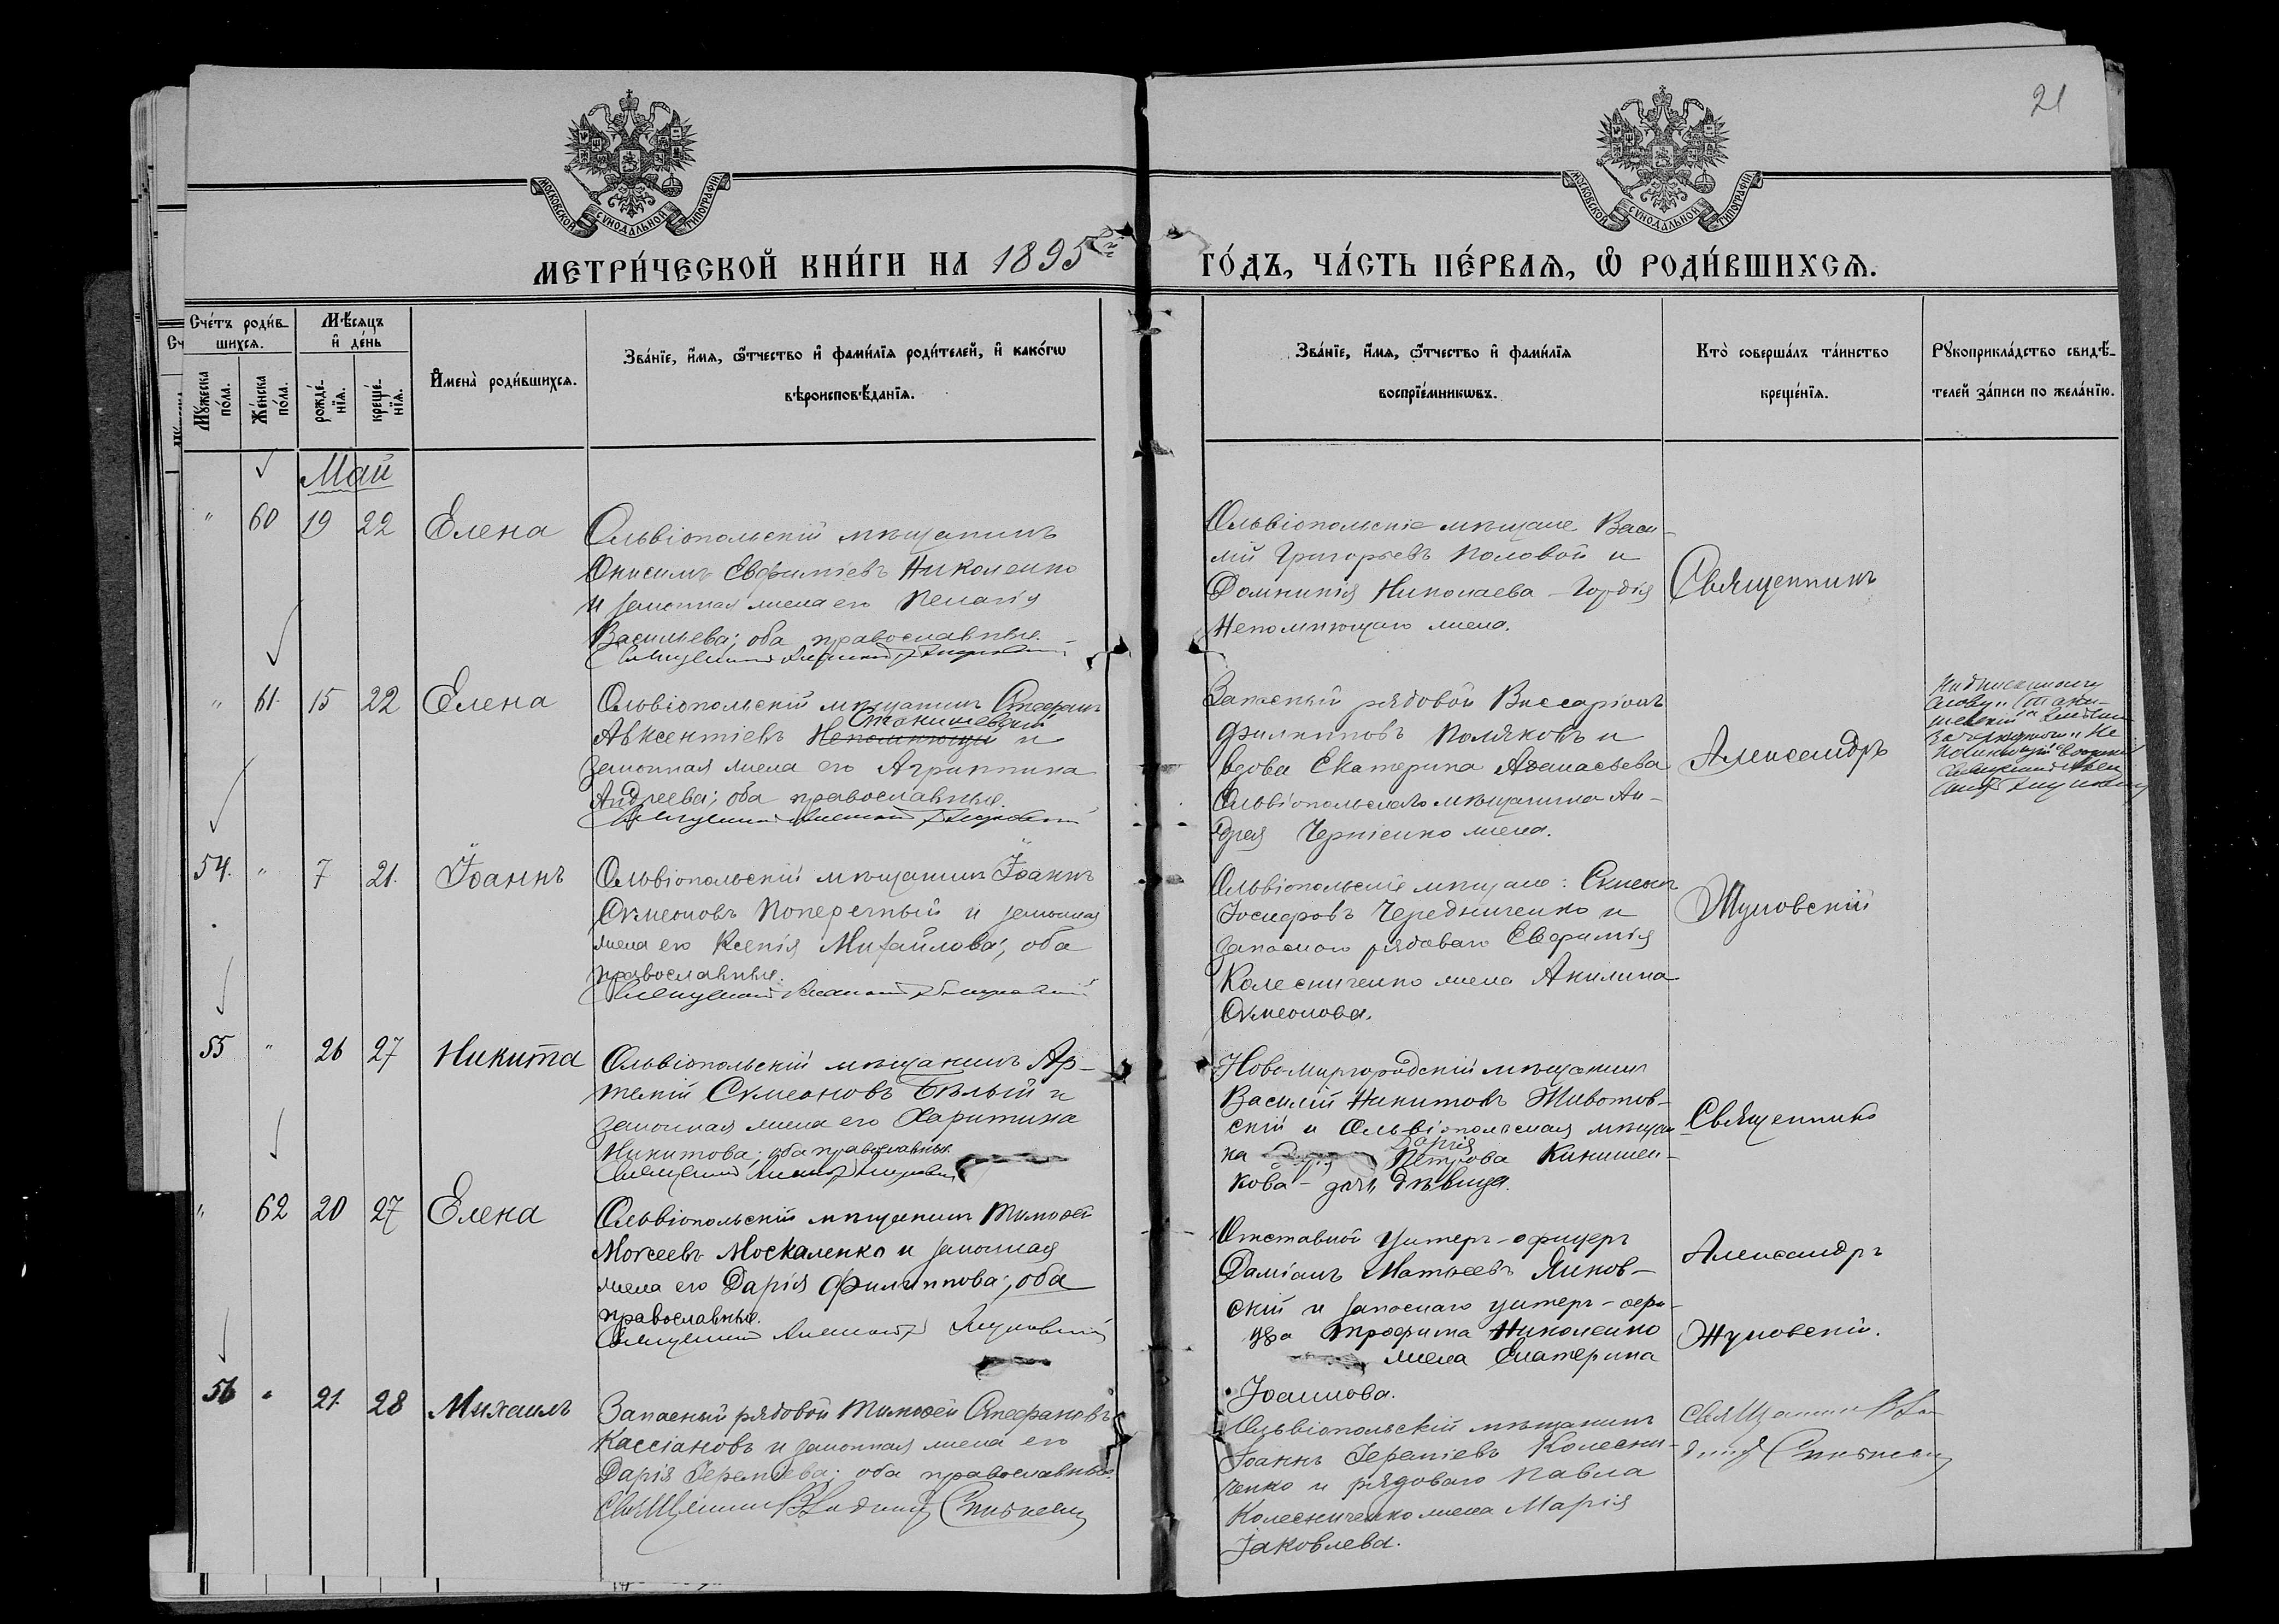 21
МОСКОВСКОЙ СУНОДАЛЬНОЙ ТИПОГРАФІИ
МОСКОВСКОЙ СУНОДАЛЬНОЙ ТИПОГРАФІИ
МЕТРИ́ЧЕСКОЙ КНИ́ГИ НА 1895
ГО́ДЪ, ЧА́СТЬ ПЕ́РВАѦ, Ѽ РОДИ́ВШИХСѦ.
Сче́тъ роди́в-
шихсѧ.
Мꙋ́жеска
по́ла.
Же́нска
по́ла.
Мѣ́сѧцъ
и҆ де́нь
рожде́-
нїѧ.
креще́-
нїѧ.
И҆мена̀ роди́вшихсѧ.
Зва́нїе, и҆́мѧ, ѻ҆́тчество и҆ фами́лїѧ роди́телей, и҆ како́гѡ
вѣроисповѣ́данїѧ.
Зва́нїе, и҆́мѧ, ѻ҆́тчество и҆ фами́лїѧ
воспрїе́мникѡвъ.
Кто̀ соверша́лъ та́инство
креще́нїѧ.
Рꙋкоприкла́дство свидѣ́-
телей за́писи по жела́нїю.
Май
" 60 19 22 Елена
Ольвіопольскій мѣщанинъ
Онисимъ Евфиміевъ Николенко
и законная жена его Пелагія
Васильева; оба православные.
Ольвіопольскіе мѣщане Васи-
лій Григорьевъ Половой и
Домникія Николаева - Гордія
Непомнющаго жена.
Священникъ
" 61. 15 22 Елена
Ольвіопольскій мѣщанинъ Стефанъ
Станишевскій
Авксентіевъ Непомнющій и
законная жена его Агриппина
Андреева; оба православные.
Запасный рядовой Виссаріонъ
Филипповъ Поляковъ и
вдова Екатерина Аѳанасьева
Ольвіопольскаго мѣщанина Ан-
дрея Черніенко жена.
Александръ
Надписанному
слову "Стани-
шевскій"
зачеркнутому "Не
54. " 7 21. Іоаннъ
Ольвіопольскій мѣщанинъ Іоаннъ
Сѵмеоновъ Поперечный и законная
жена его Ксенія Михайлова; оба
православные.
Ольвіопольскіе мѣщане:
Іосифовъ Чередниченко и
запаснаго рядоваго Евфимія
Колесниченко жена Акилина
Сѵмеонова.
Жуковскій
55 " 26 27 Никита
Ольвіопольскій мѣщанинъ Ар-
темій Сѵмеоновъ Бѣлый и
законная жена его Харитина
Никитова; оба православные.
Ново-миргородскій мѣщанинъ
Василій Никитовъ Животов-
скій и Ольвіопольская мѣщан
Дарія
ка Петрова Кикишен-
кова - дѣвица.
Священникъ
" 62 20 27 Елена
Ольвіопольскій мѣщанинъ Тимоѳей
Моѵсеевъ Москаленко и законная
жена его Дарія Филиппова; оба
православные.
Священникъ Александръ Жуковскій
Отставной унтеръ-офицеръ
Даміанъ Матѳеевъ Янков-
скій и запаснаго унтеръ-офи-
цера Трофима Николенко
жена Екатерина
Іоаннова.
Александръ
Жуковскій.
56 " 21. 28 Михаилъ
Запасный рядовой Тимоѳей Стефановъ
Кассіановъ и законная жена его
Дарія Іереміева; оба православные.
Ольвіопольскій мѣщанинъ
Іоаннъ Іереміевъ Колесни-
ченко и рядоваго Павла
Колесниченко жена Марія
Іаковлева.
Священникъ